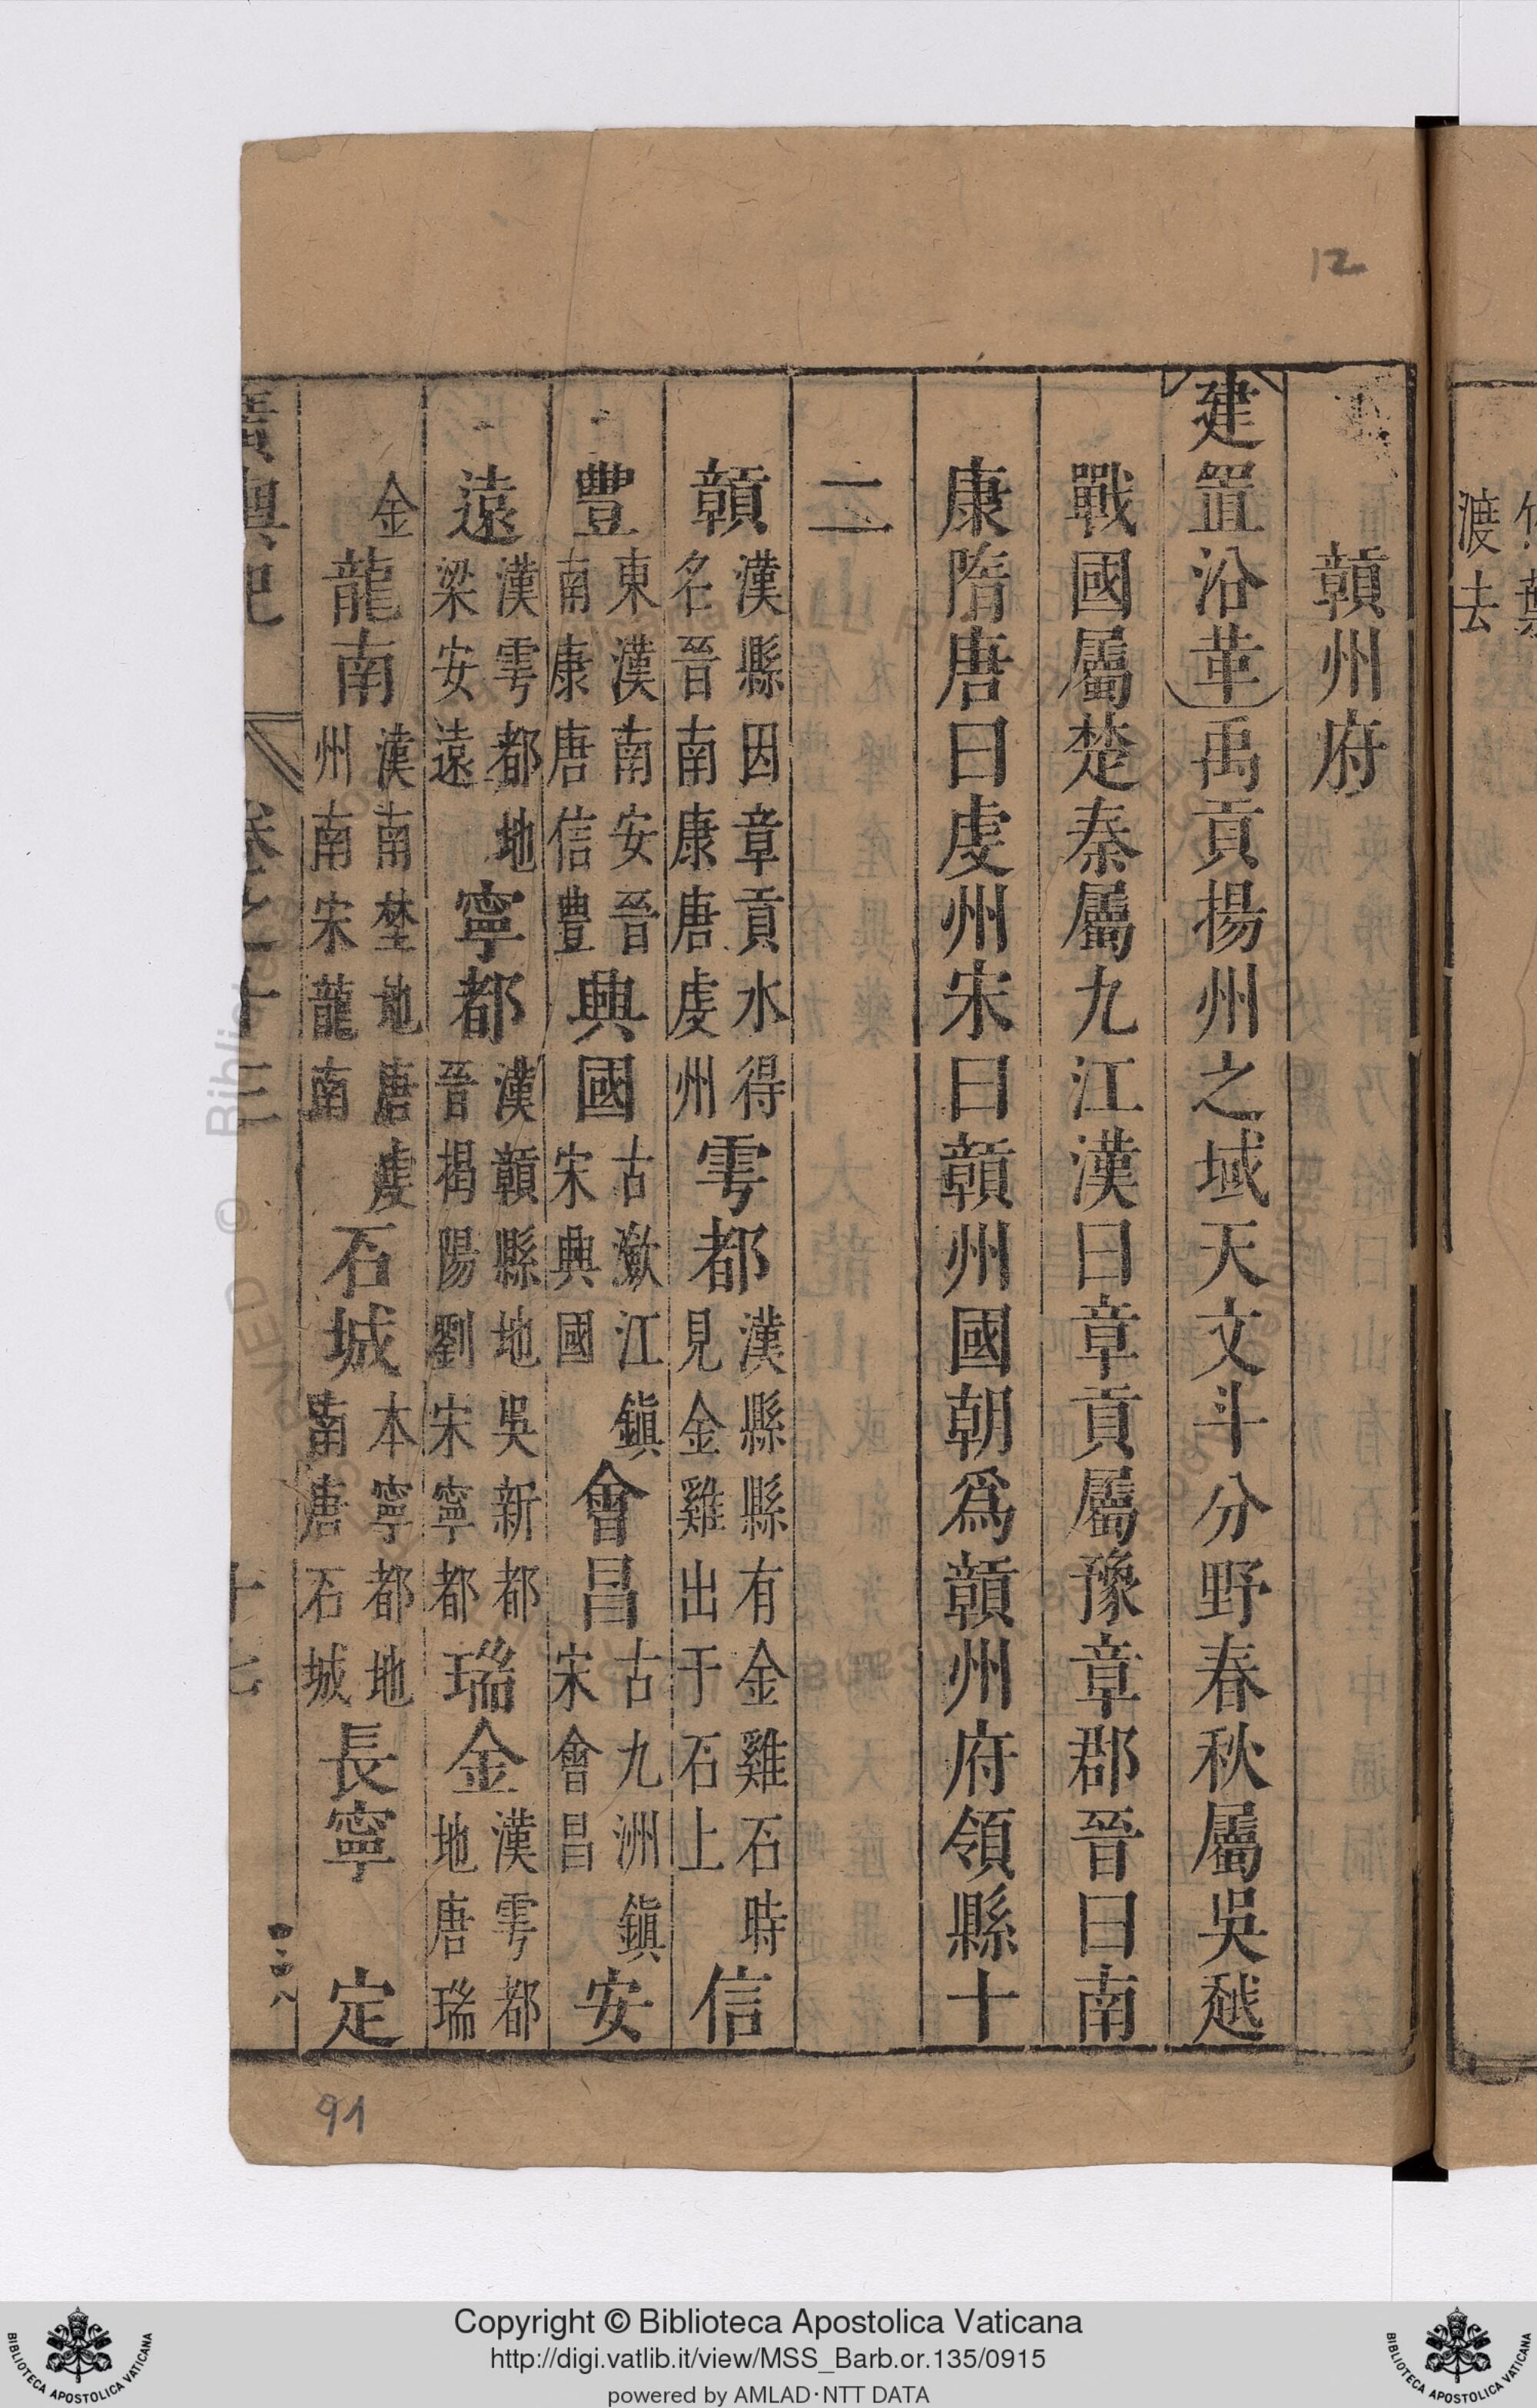 12
竹葉
渡去
贛州府
建置沿革禹貢揚州之域天文斗分野春秋屬吳越
戰國屬楚秦屬九江漢曰章貢屬豫章郡晉曰南
康隋唐曰虔州宋曰贛州國朝爲贛州府領縣十
二
贛漢縣因章貢水得名晉南康唐虔州雩都漢縣縣有金雞石時見金雞出于石上信
豐東漢南安晉南康唐信豊興國古瀲江鎮宋興國會昌古九洲鎮宋會昌安
遠漢雩都地梁安遠寧都漢贛縣地吳新都晉揭陽劉宋寧都瑞金漢雩都地唐瑞
金龍南漢南埜地唐虔州南宋龍南石城本寧都地南唐石城長寧定
廣輿記 卷之十三 十七
91
Copyright © Biblioteca Apostolica Vaticana
http://digi.vatlib.it/view/MSS_Barb.or.135/0915
powered by AMLAD·NTT DATA
BIBLIOTECA APOSTOLICA VATICANA
BIBLIOTECA APOSTOLICA VATICANA